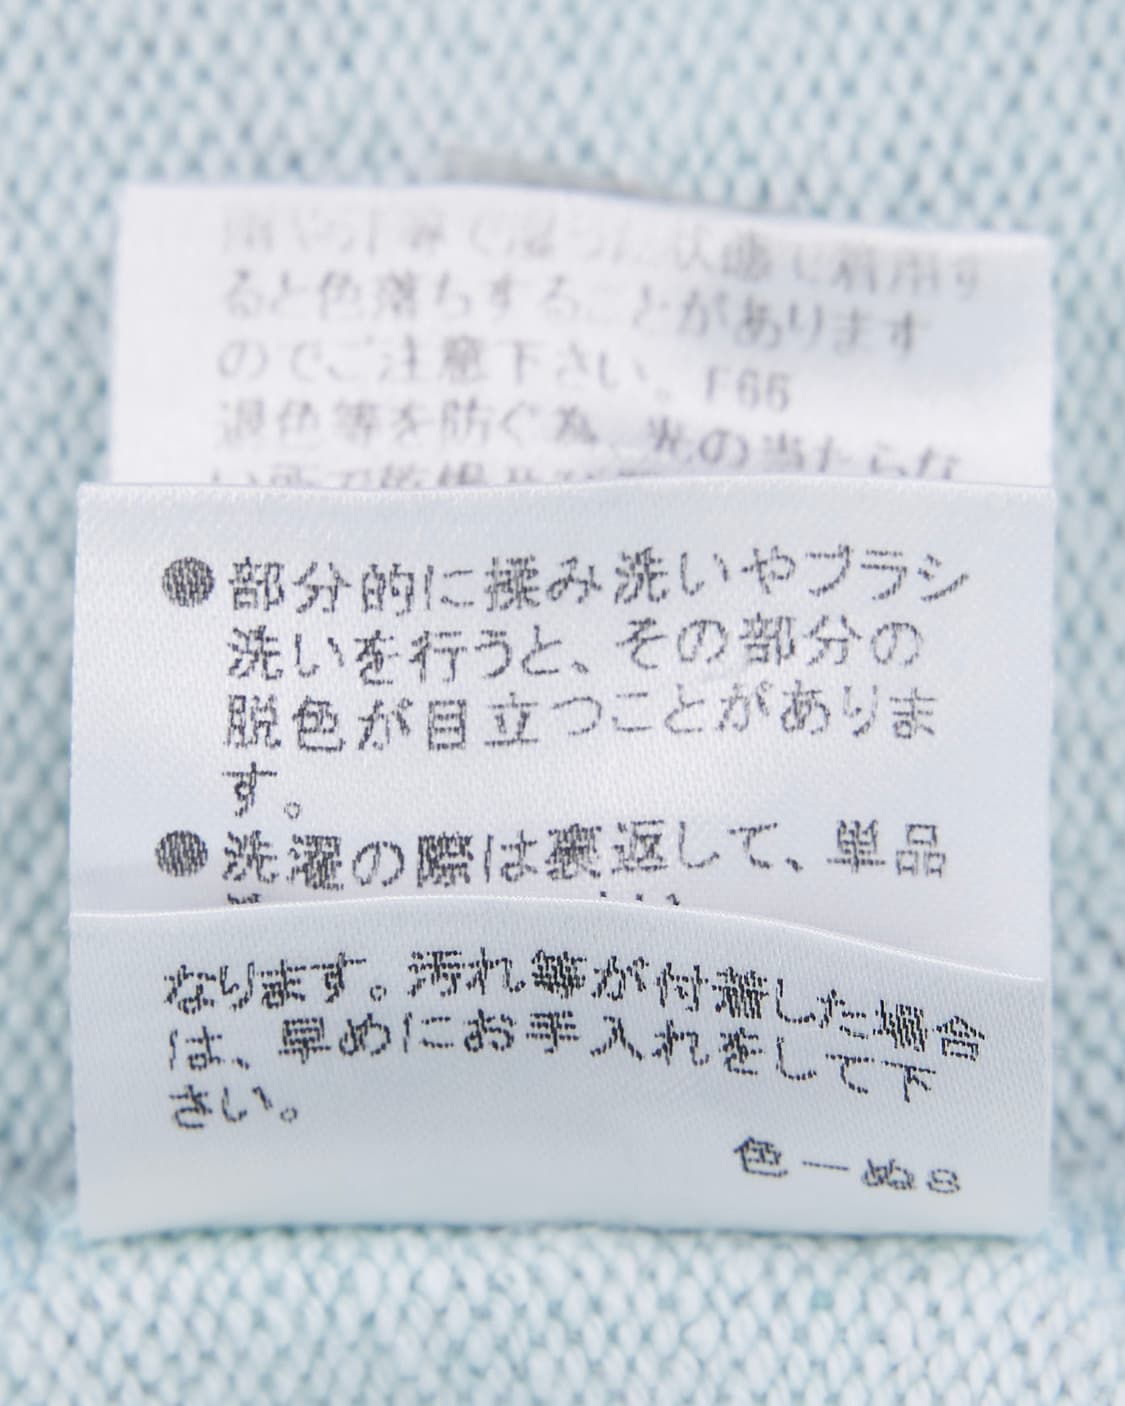 雨や汗等で湿った状態で着用す
ると色落ちすることがあります
のでご注意下さい。F66
退色等を防ぐ為、光の当たらな
い所で乾燥及び
●部分的に揉み洗いやブラシ
洗いを行うと、その部分の
脱色が目立つことがありま
す。
●洗濯の際は裏返して、単品
なります。汚れ等が付着した場合
は、早めにお手入れをして下
さい。
色－ぬ8